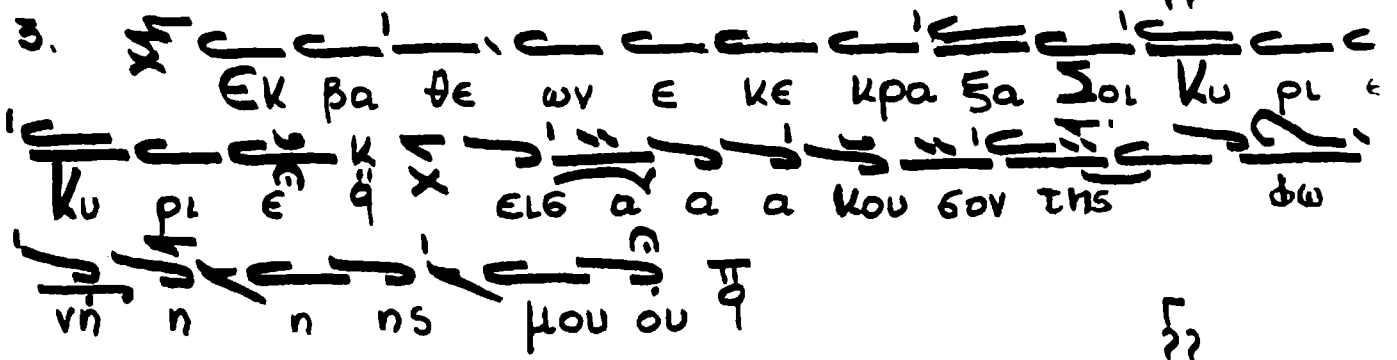 3. Εκ βα θε ων ε κε κρα ξα Σοι Κυ ρι ε
Κυ ρι ε εις α α α κου σον της φω
νη η η ης μου ου